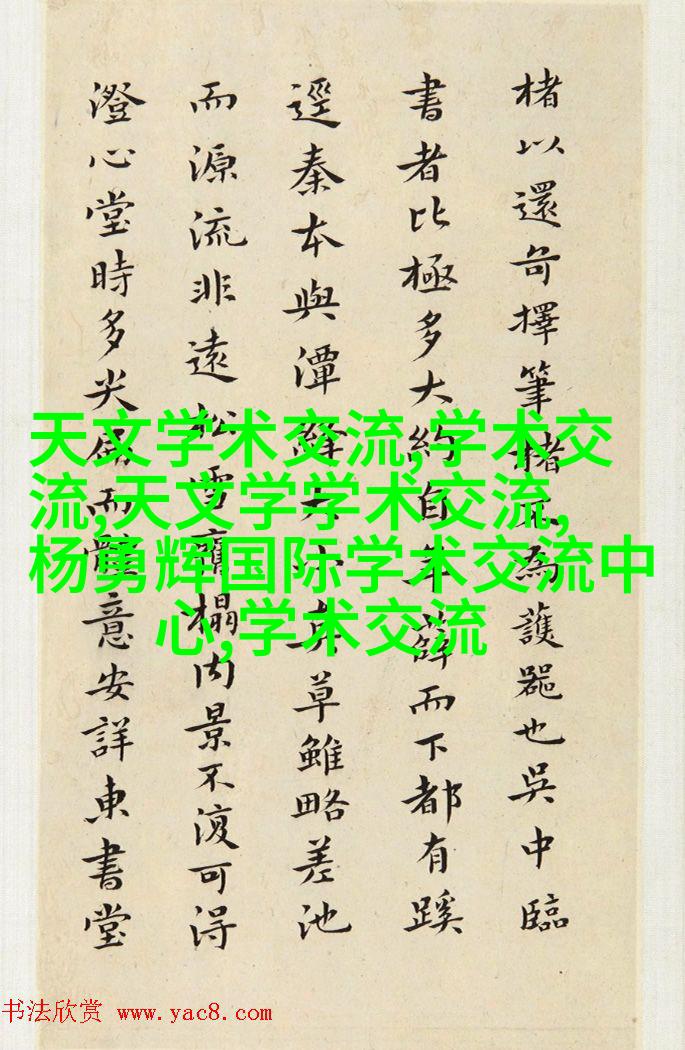 楮以還奇擇筆楮為護器也吳中臨
書者比極多大約自年薛而下都有蹊
逕秦本與潭絳草雖略差池
而源流非遠松雪榻内景不復可得
澄心堂時多尖而意安詳東書堂
天文学术交流,学术交
流,天文学学术交流,
杨勇辉国际学术交流中
心,学术交流
书法欣赏 www.yac8.com